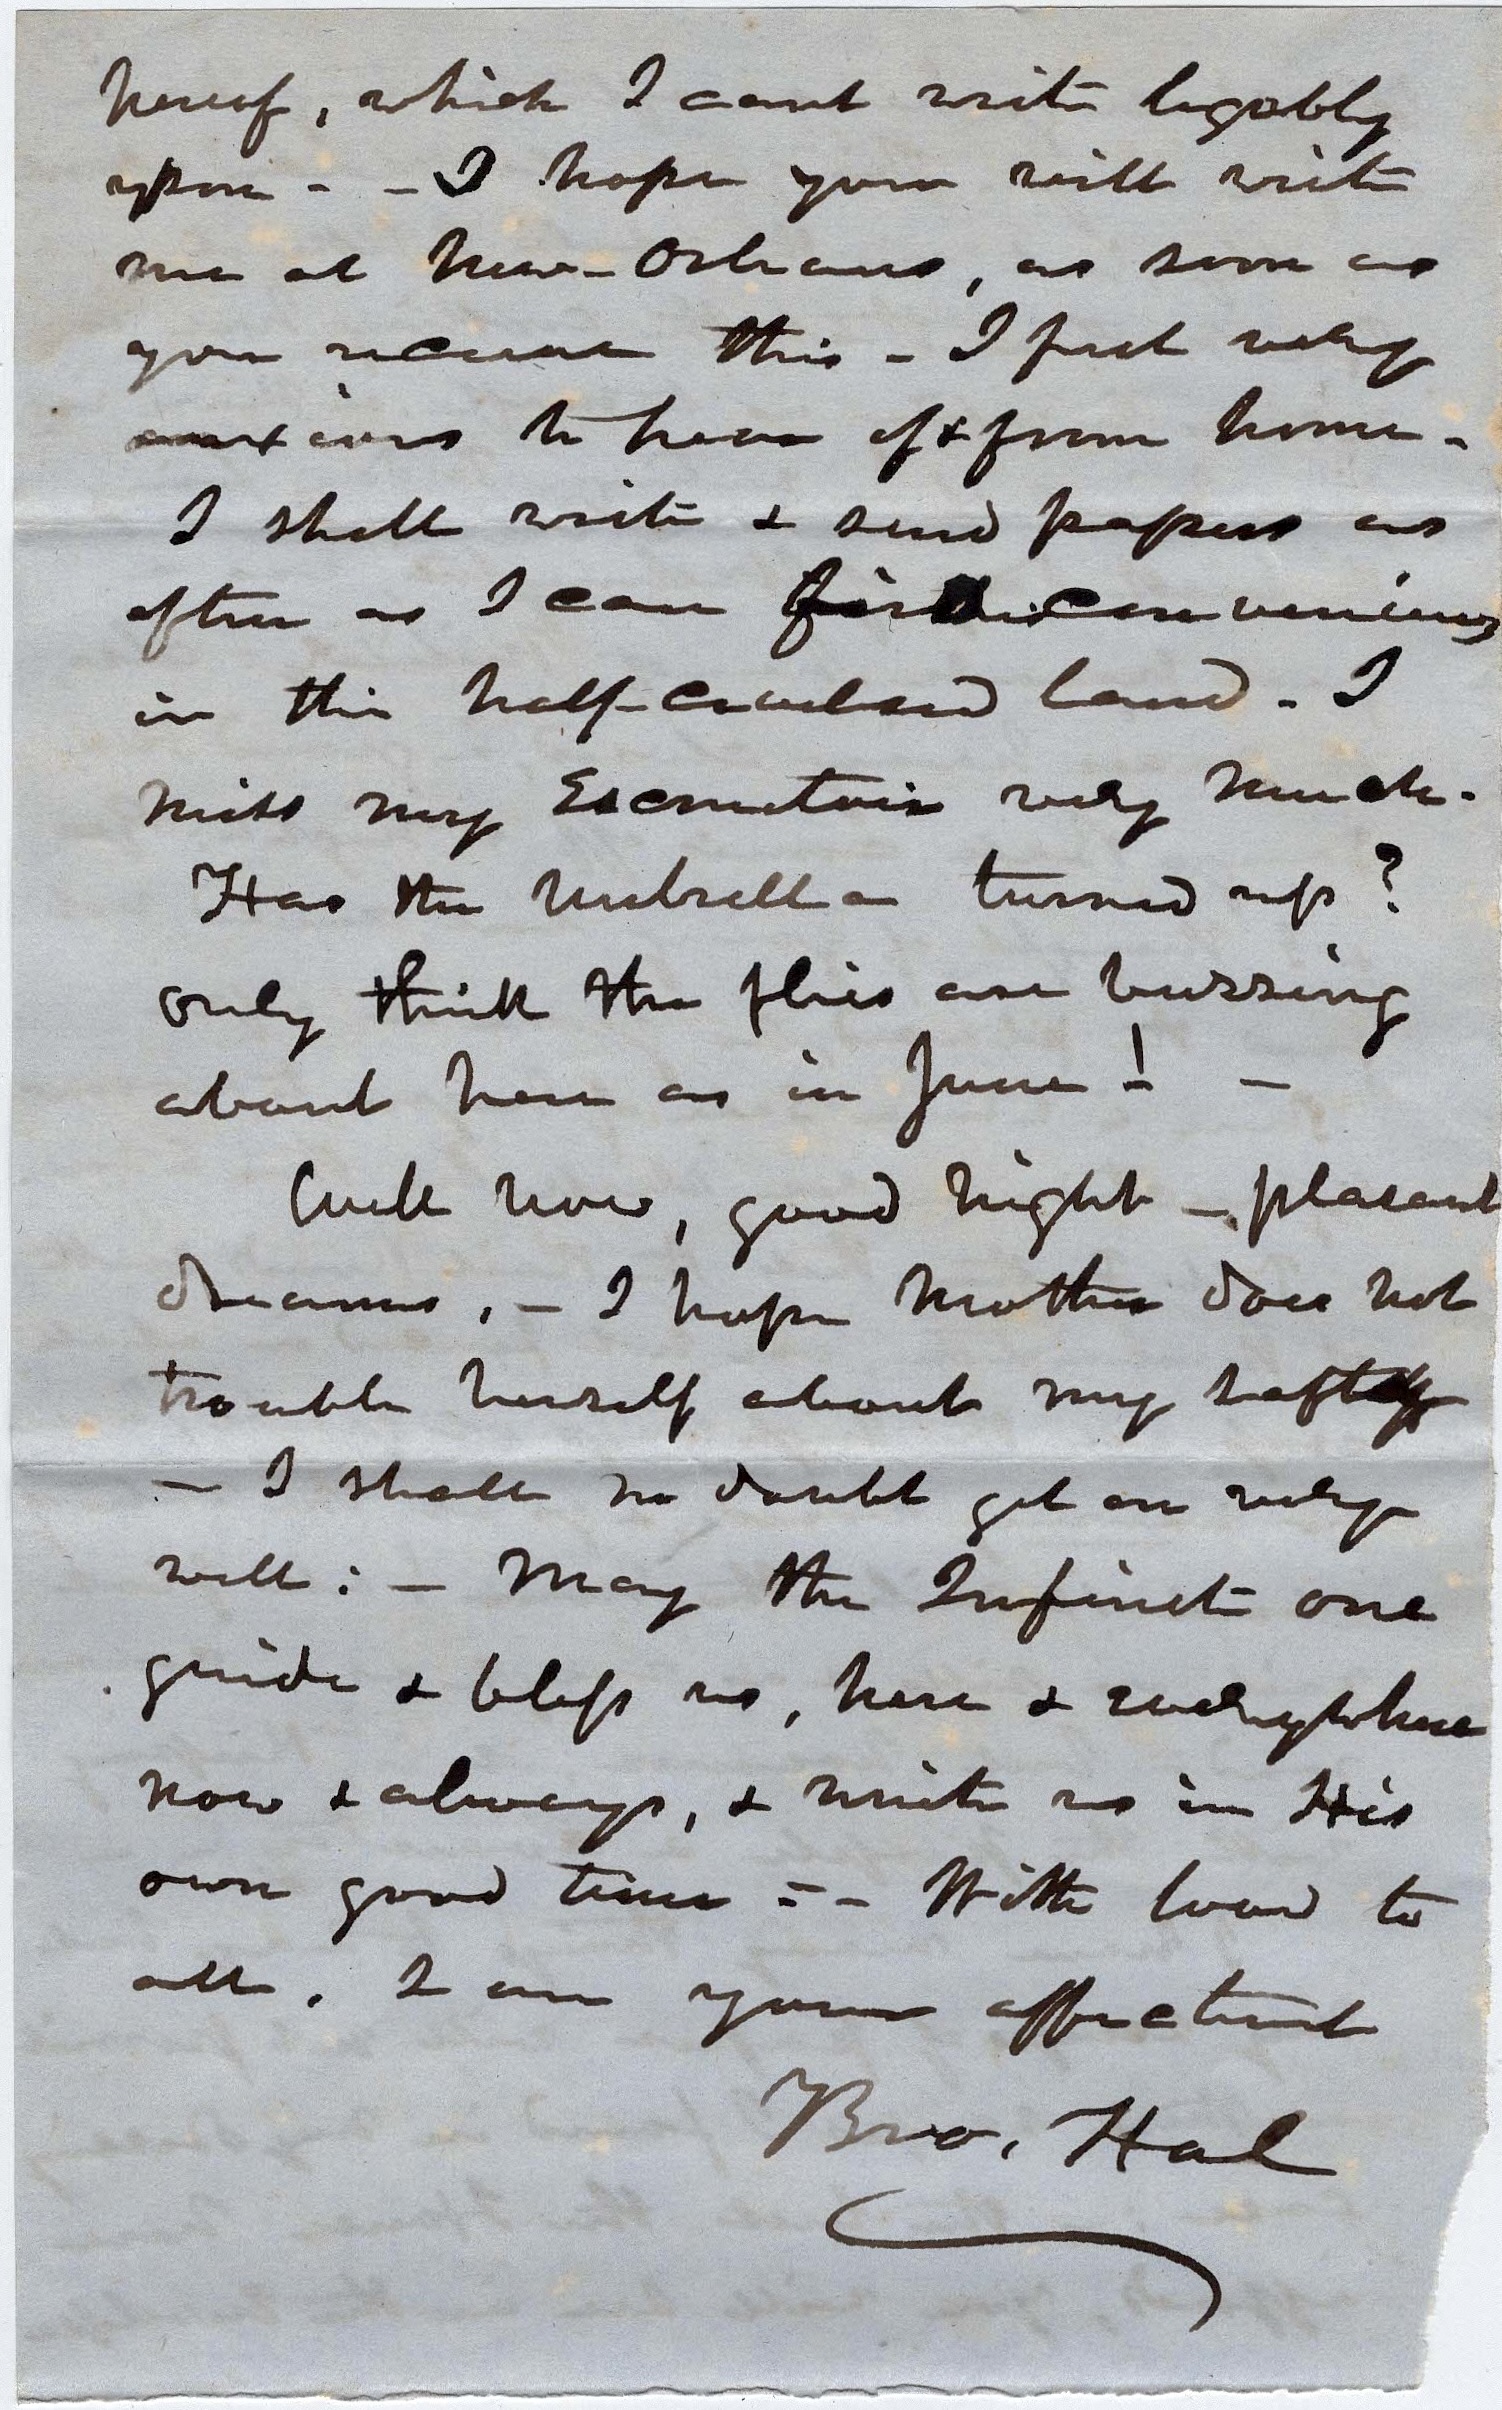 hereof, which I cant write legibly
upon - - I hope you will write
me at New-Orleans, as soon as
you receive this - I feel very
anxious to hear of & from home -
I shall write & send papers as
often as I can find conveniences
in this half-civilized land - I
miss my Escrutoir very much -
Has the Umbrella turned up?
only think the flies are buzzing
about here as in June! -
Well now, good night - pleasant
dreams, - I hope Mother does not
trouble herself about my safty
- I shall no doubt get on very
well: - May the Infinite one
guide & bless us, here & everywhere
now & always, & unite us in His
own good time = - With love to
all, I am your affectinat
Bro, Hal